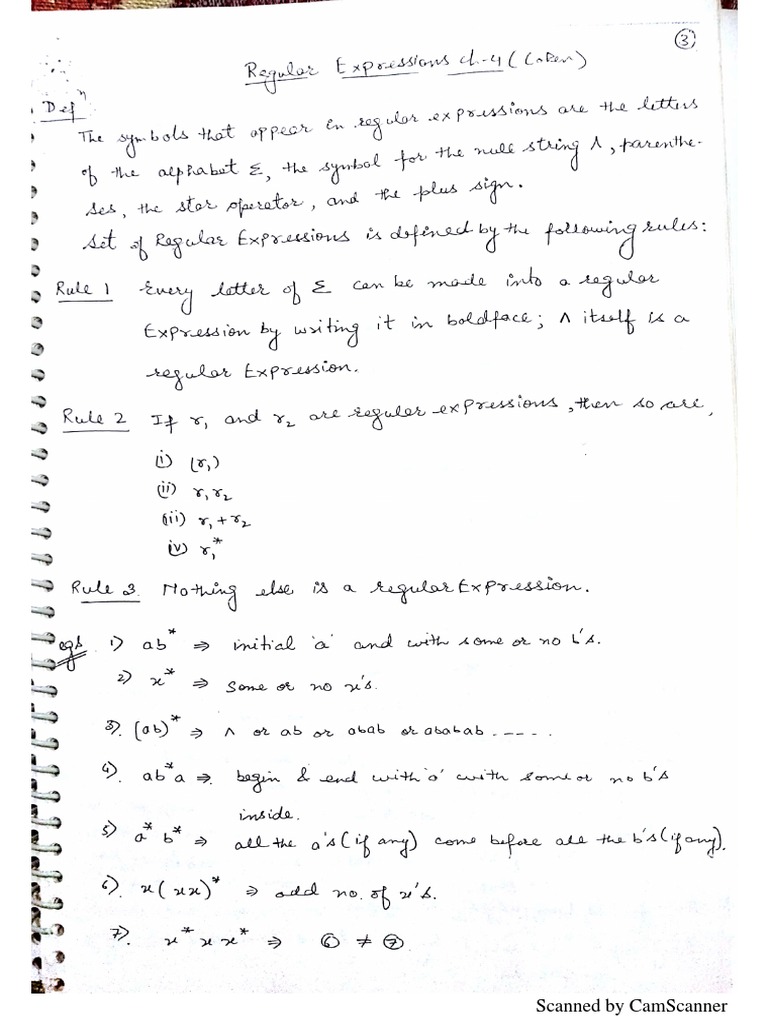 ③
Regular Expressions ch-4 (Cohen)
Defⁿ
The symbols that appear in regular expressions are the letters
of the alphabet Σ, the symbol for the null string Λ, parenthe-
ses, the star operator, and the plus sign.
Set of Regular Expressions is defined by the following rules:
Rule 1 Every letter of Σ can be made into a regular
Expression by writing it in boldface; Λ itself is a
regular Expression.
Rule 2 If r₁ and r₂ are regular expressions, then so are,
(i) (r₁)
(ii) r₁r₂
(iii) r₁+r₂
(iv) r₁*
Rule 3. Nothing else is a regular Expression.
egs. 1) ab* ⇒ initial 'a' and with some or no b's.
2) x* ⇒ some or no x's.
3). (ab)* ⇒ Λ or ab or abab or ababab.....
4). ab*a ⇒ begin & end with 'a' with some or no b's
inside.
5) a* b* ⇒ all the a's (if any) come before all the b's (if any).
6). x(xx)* ⇒ odd no. of x's.
7). x* x x* ⇒ ⑥ ≠ ⑦
Scanned by CamScanner